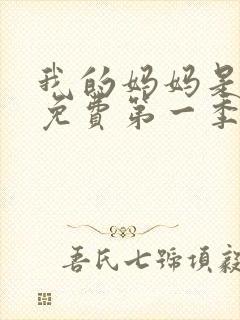 我的妈妈是
免费第一季
吾氏七號項毅